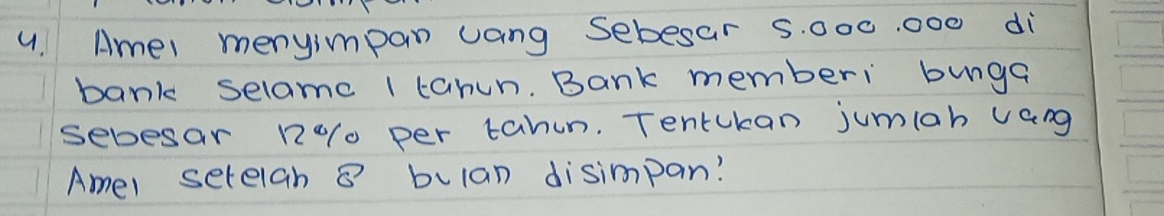 4. Amei menyimpan uang sebesar 5.000.000 di
bank selama 1 tahun. Bank memberi bunga
sebesar 12% per tahun. Tentukan jumlah uang
Amei setelah 8 bulan disimpan!